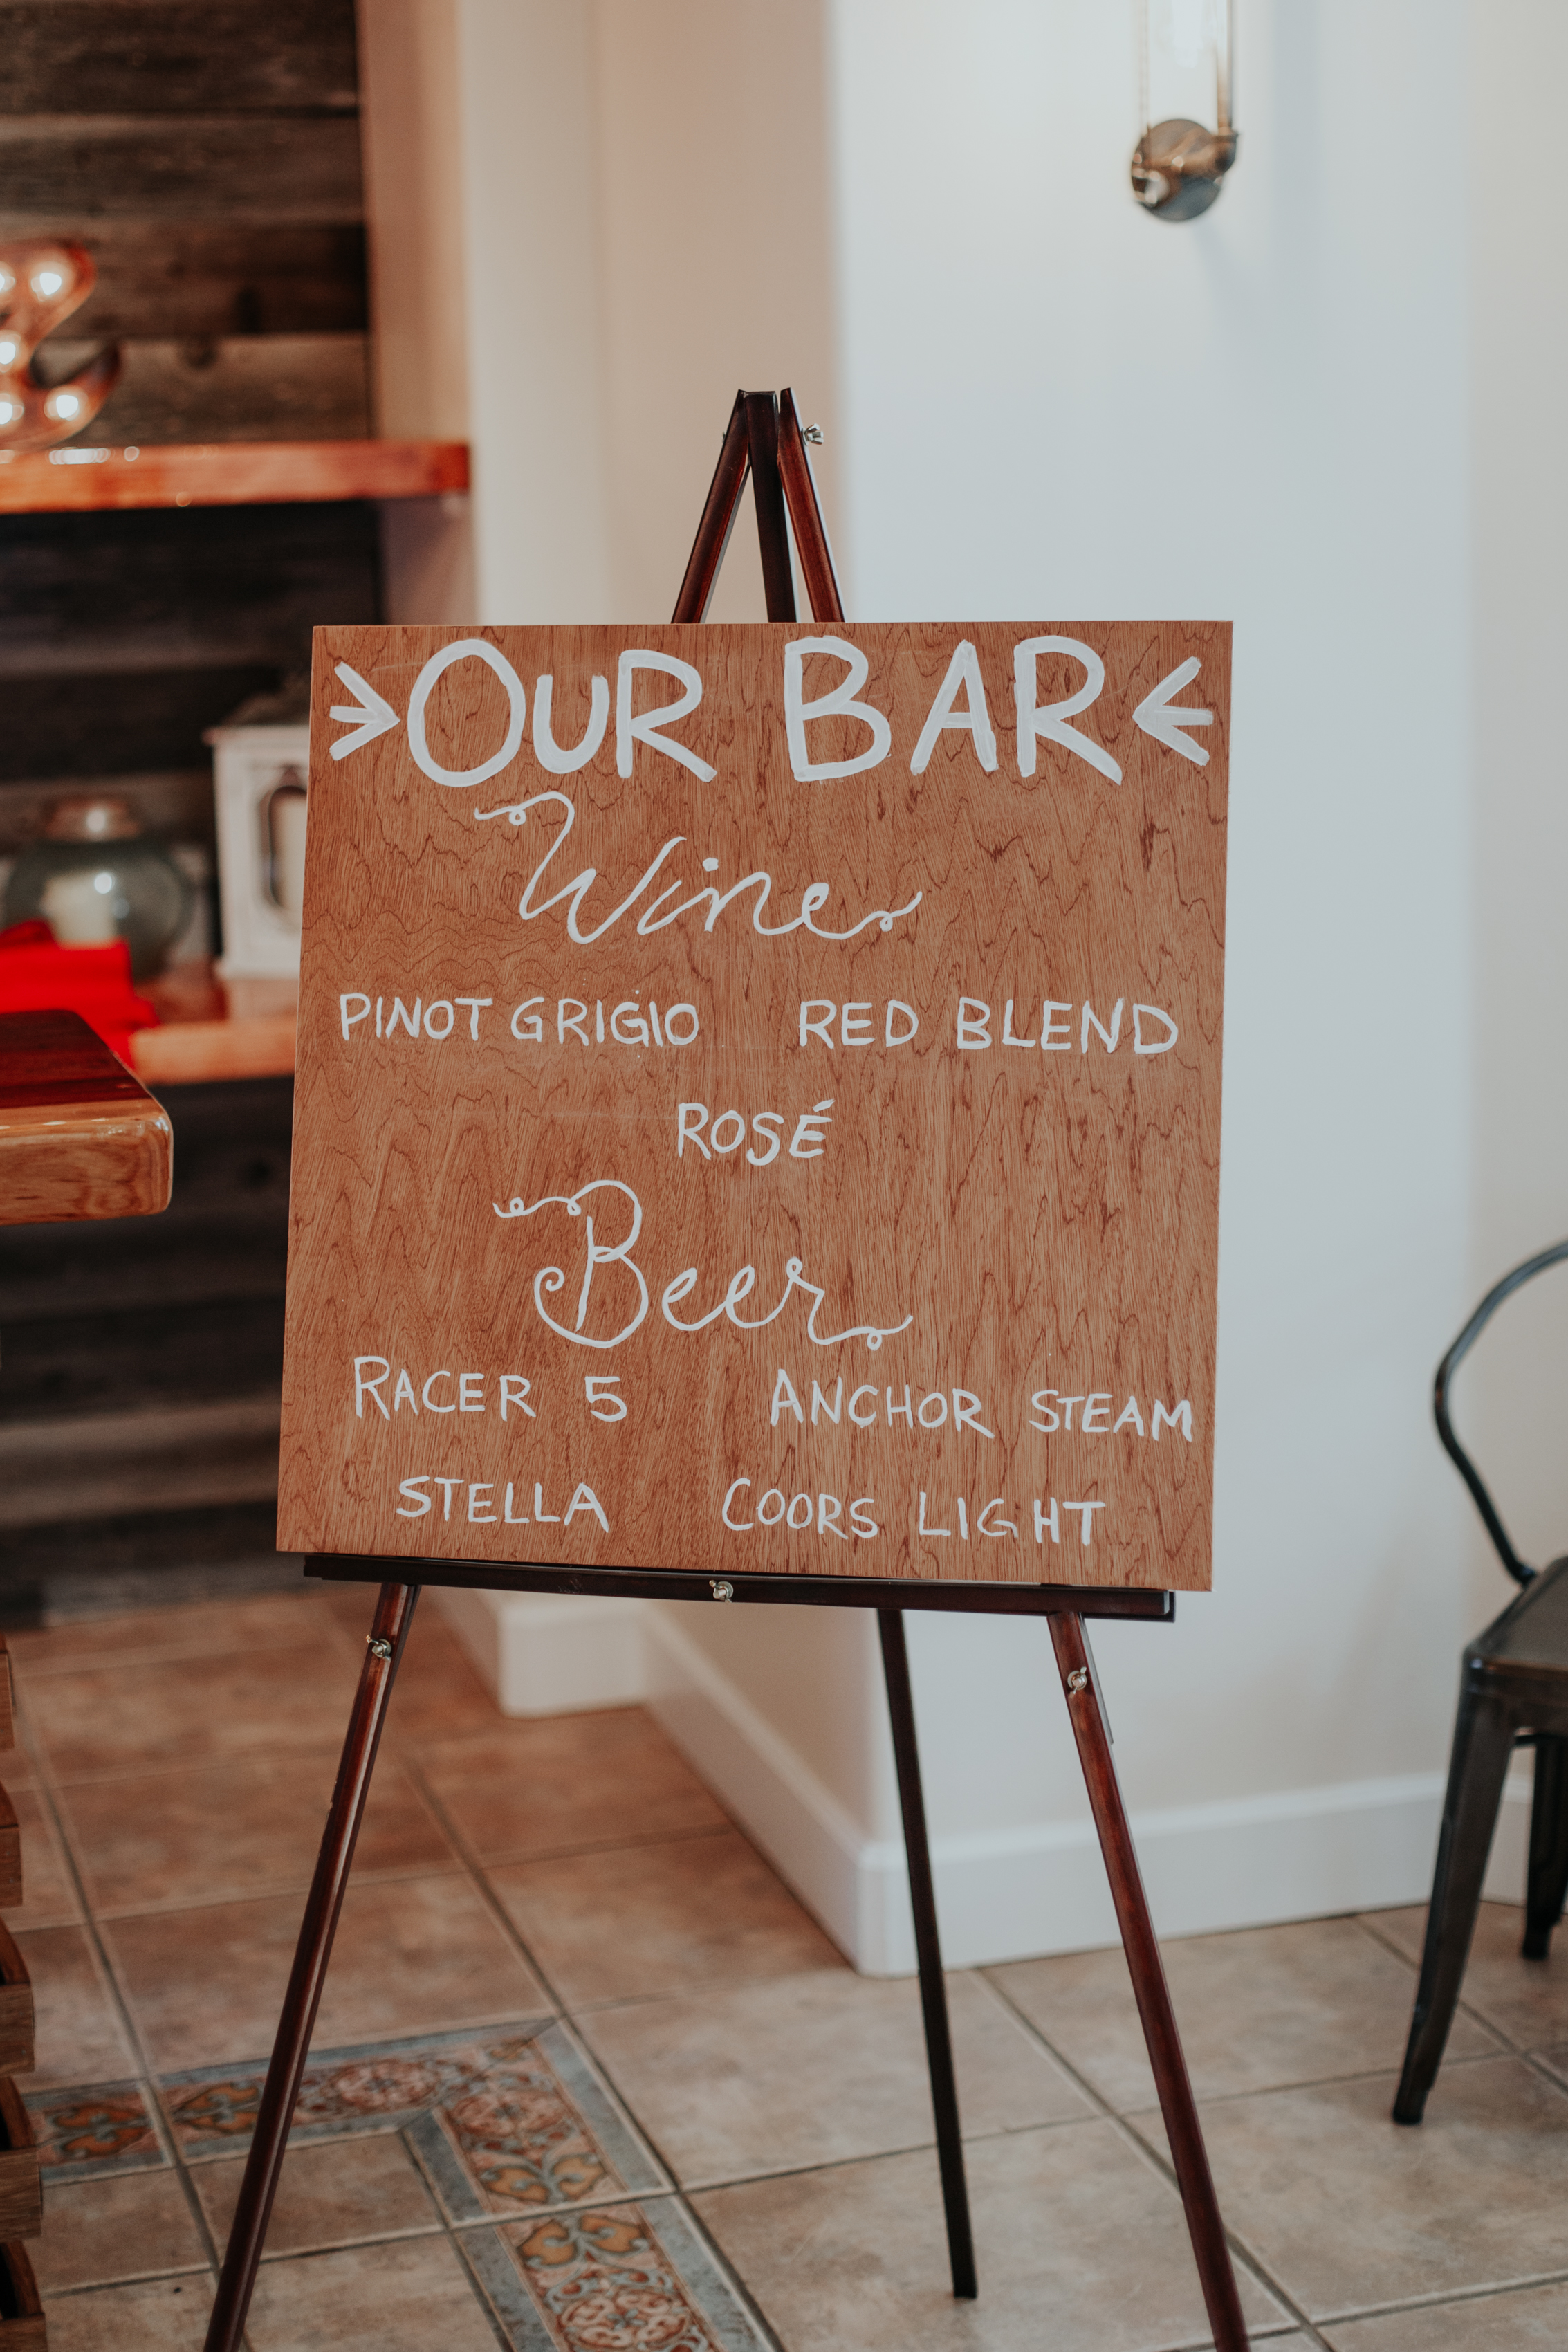 OUR BAR
Wine
PINOT GRIGIO RED BLEND
ROSÉ
Beer
RACER 5 ANCHOR STEAM
STELLA COORS LIGHT